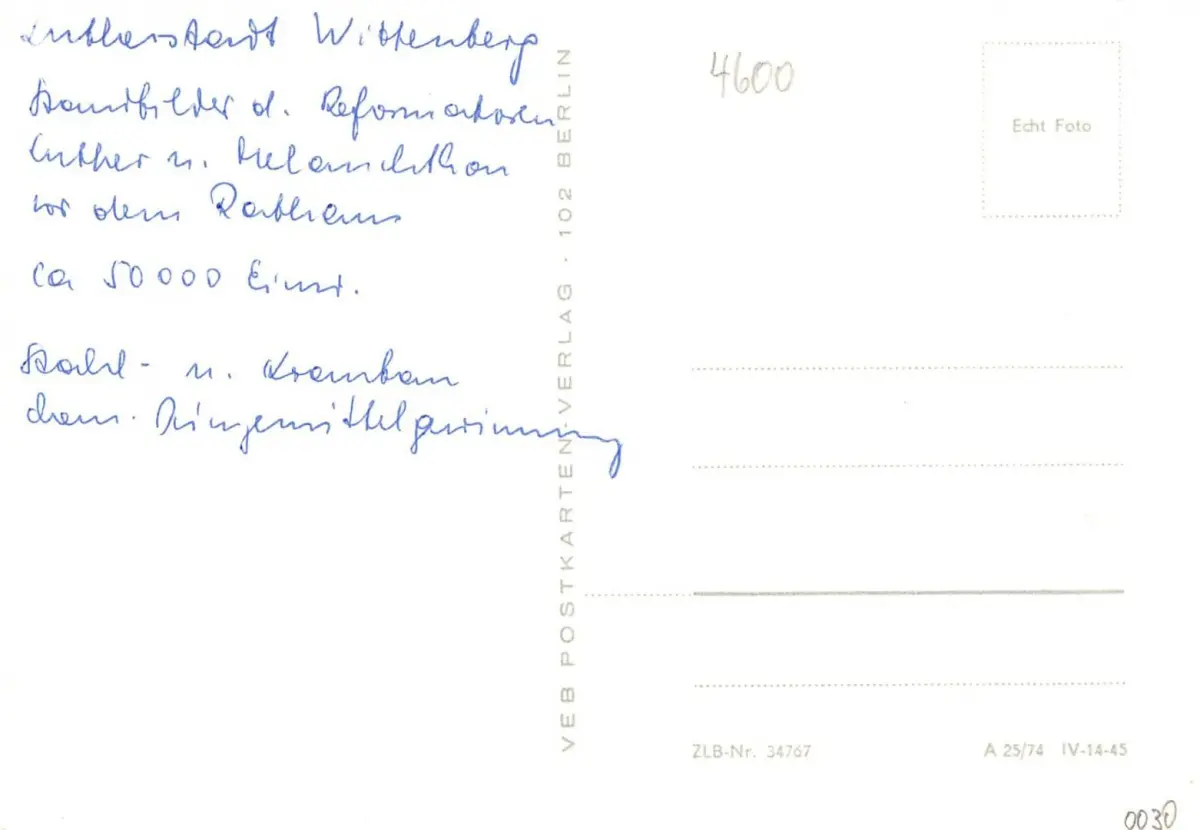 Lutherstadt Wittenberg
Standbilder d. Reformatoren
Luther u. Melanchthon
vor dem Rathaus
ca 50000 Einw.
Stahl- u. Kranbau
chem. Düngemittelgewinnung
VEB POSTKARTEN-VERLAG · 102 BERLIN
4600
Echt Foto
ZLB-Nr. 34767
A 25/74 IV-14-45
0030